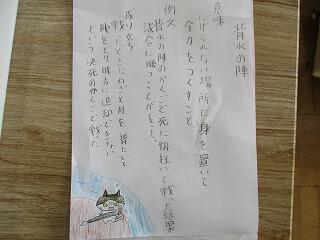 背水の陣
意味
にげられない場所に身を置いて
全力をつくすこと
例文
背水の陣のかくごで死に物狂いで戦った結果
試合に勝つことができた。
成り立ち
戦ったときにわざと川を背にして
陣をとり味方に退却できない
という決死のかくごで戦った